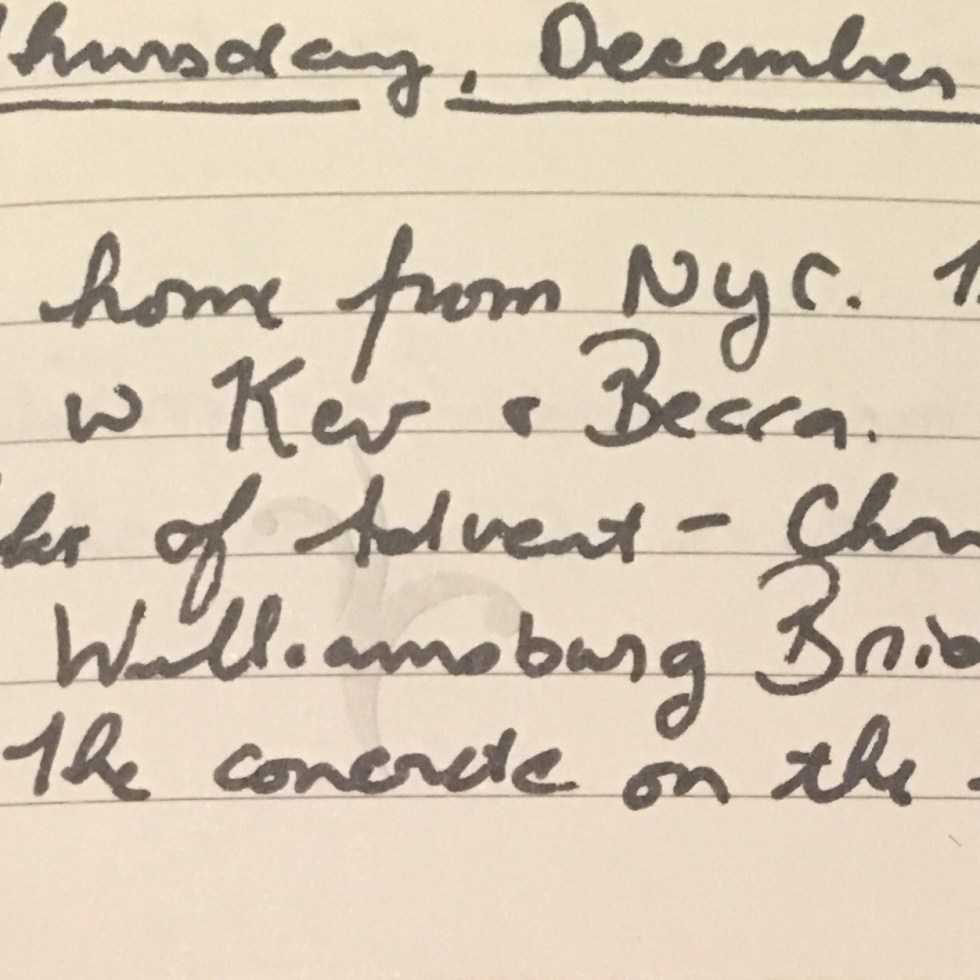 Thursday, December
home from NYC.
w Kev & Becca.
of Advent -
Williamsburg
The concrete on the